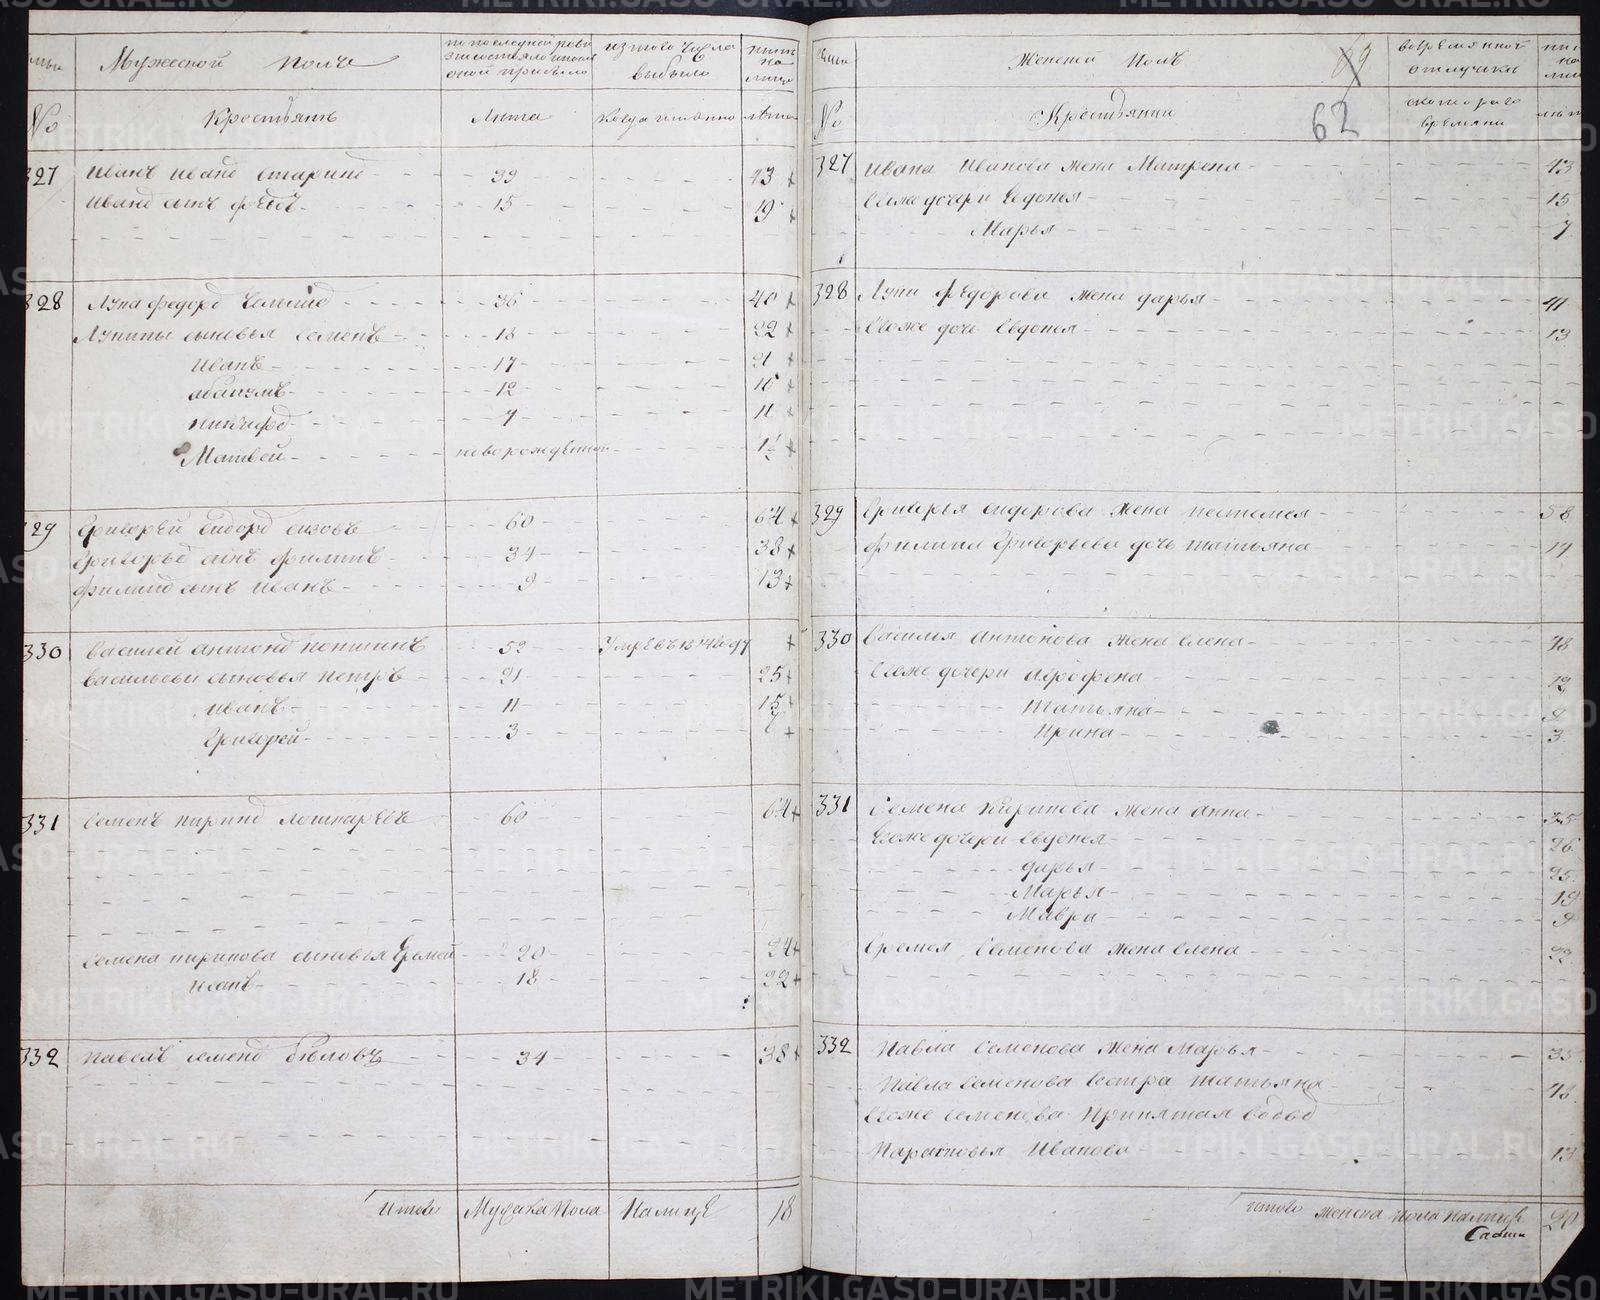 Мужеской полъ
по последней ревизіи состояло и после оной прибыло
изтово числа выбыло
ныне на лицо
№
Крестьянъ
Лета
Когда имянно
лета
327
Иванъ Иванд Старинд
39
43
Иванд сынъ Федотъ
15
19
328
Лупа Федорд
36
40
Лупины сыновья Семенъ
18
22
Иванъ
17
21
12
16
Никифорд
7
11
Матвей
новорожденной
329
Григорей Сидорд Сизовъ
60
64
Григорьевд сынъ Филипъ
34
38
Филипд сынъ Иванъ
9
13
330
Василей Антонд
52
Умре въ 1814 году
Васильевы сыновья Петръ
21
25
Иванъ
11
15
Григорей
3
7
331
Семенъ Кирилд Лошкаревъ
60
64
Семена Кирилова сыновья Еремей
20
24
Иванъ
18
22
332
Павелъ Семенд Беловъ
34
38
Итого
Мужска пола
Налице
18
Женской полъ
69
62
во временной отлучке
№
Крестьянки
скотораго времяни
лета
327
Ивана Иванова жена Матрена
43
Ево же дочери Евдокея
15
Марья
7
328
Лупы Федорова жена Дарья
41
Ево же дочь Евдокея
13
329
Григорья Сидорова жена
58
Филипа Григорьева дочь Татьяна
14
330
Василья Антонова жена Елена
48
Ево же дочери Агрофена
12
Татьяна
9
Ирина
3
331
Семена Кирилова жена Анна
Ево же дочери Евдокея
26
Дарья
25
Марья
19
Мавра
9
Еремея Семенова жена Елена
22
332
Павла Семенова жена Марья
35
Павла Семенова сестра Татьяна
48
Ево же Семенова принятая
Парасковья Иванова
13
Итого
женска пола налице
20